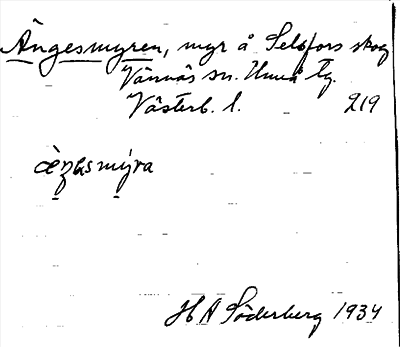 Ängesmyren, myr å Selsfors skog
Vännäs sn. Umeå tg.
Västerb. l. 219
æŋəsmýra
H A Söderberg 1934